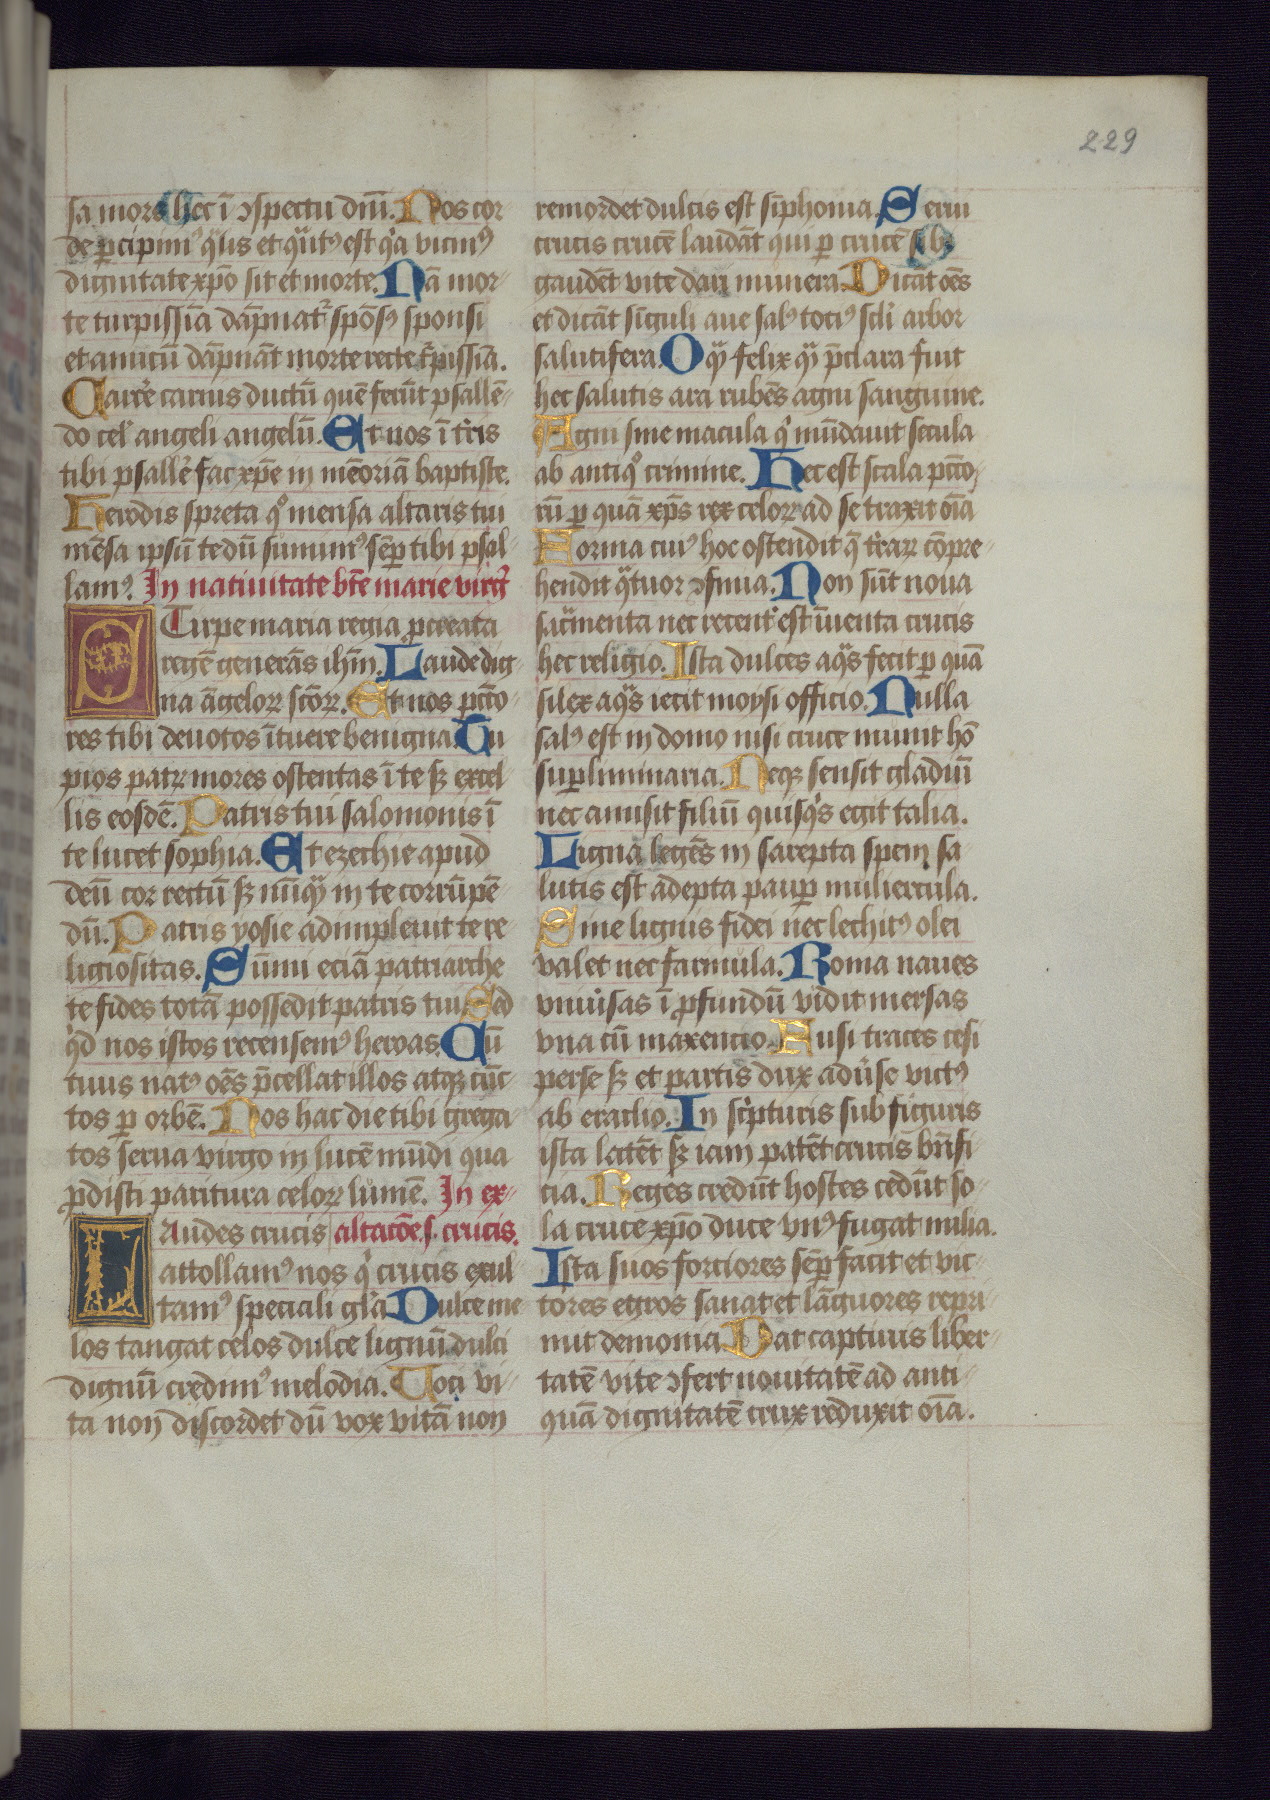 229
sa mors hec ī ɔspectu dm̄. Nos cor
de ꝑcipimꝰ qͣlis et qͣntꝰ est qͥa vicinꝰ
dignitate xp̄o sit et morte. Nā mor-
te turpissīa dāpnatr̄ spōsꝰ sponsi
et amicū dāpnāt morte recte t̄pissīa.
Caur̄e carnis ductū quē ferūt psallē-
do cel̄ angeli angelū. Et nos ī tr̄is
tibi psallē fac xp̄e in mēoriā baptiste.
Herodis spreta qͦ mensa altaris tui
mēsa ipsū te dū sumimꝰ sēꝑ tibi psal-
lamꝰ. In natiuitate bt̄e marie virgꝭ
Stirpe maria regia ꝓcreata
regē generās ih̄m. Laude dig-
na āgeloꝝ sc̄oꝝ. Et nos pcc̄o-
res tibi deuotos ītuere benigna. Tu
pios patꝝ mores ostentas ī te sꝫ excel-
lis eosdē. Patris tui salomonis ī
te lucet sophia. Et ezechie apud
deū cor rectū sꝫ nūqͣ in te corrūpē-
dū. Patris yosie adimpleuit te re
ligiositas. Sūmi eciā patriarche
te fides totā possedit patris tui. Sed
qͥd nos istos recensemꝰ heroas. Cū
tuus natꝰ oēs p̄cellat illos atqꝫ cūc-
tos ꝑ orbē. Nos hac die tibi grega-
tos serua virgo in lucē mūdi qua
ꝓdisti paritura celoꝝ lumē. In ex-
Laudes crucis altacōe s. crucis.
attollamꝰ nos qͥ crucis exul-
tamꝰ speciali gl̄a. Dulce me
los tangat celos dulce lignū dulci
dignū credimꝰ melodia. Voci vi-
ta non discordet dū vox vitā non
remordet dulcis est sīphonia. Serui
crucis crucē laudāt qui ꝑ crucē sibi
gaudēt vite dari munera. Dicāt oēs
et dicāt sīguli aue salꝰ tociꝰ scl̄i arbor
salutifera. O qͣ felix qͣ p̄clara fuit
hec salutis ara rubēs agni sanguine.
Agni sine macula qͥ mūdauit secula
ab antiqͦ crimine. Hec est scala pcc̄o-
rū ꝑ quā xp̄s rex celoꝝ ad se traxit oīa
Forma cuiꝰ hoc ostendit q̄ tr̄aꝝ cōpre-
hendit qͣtuor ɔfinia. Non sūt noua
sacͣmenta nec recent̄ est īuenta crucis
hec religio. Ista dulces aqͣs fecit ꝑ quā
silex aqͣs iecit moysi officio. Nulla
salꝰ est in domo nisi cruce munit hō
suꝑliminaria. Neqꝫ sensit gladiū
nec amisit filiū quisqͥs egit talia.
Ligna legēs in sarepta spem sa-
lutis est adepta pauꝑ muliercula.
Sine lignis fidei nec lechitꝰ olei
valet nec farinula. Roma naues
vniūsas ī ꝓfundū vidit mersas
vna cū maxencio. Fusi traces cesi
perse sꝫ et partis dux adūse victꝰ
ab eraclio. In scͥpturis sub figuris
ista latēt sꝫ iam patēt crucis bn̄fi-
cia. Reges credūt hostes cedūt so-
la cruce xp̄o duce vnꝰ fugat milia.
Ista suos fortiores sēꝑ facit et vic-
tores egros sanat et lāguores repri-
mit demonia. Dat captiuis liber-
tatē vite ɔfert nouitatē ad anti-
quā dignitatē crux reduxit oīa.